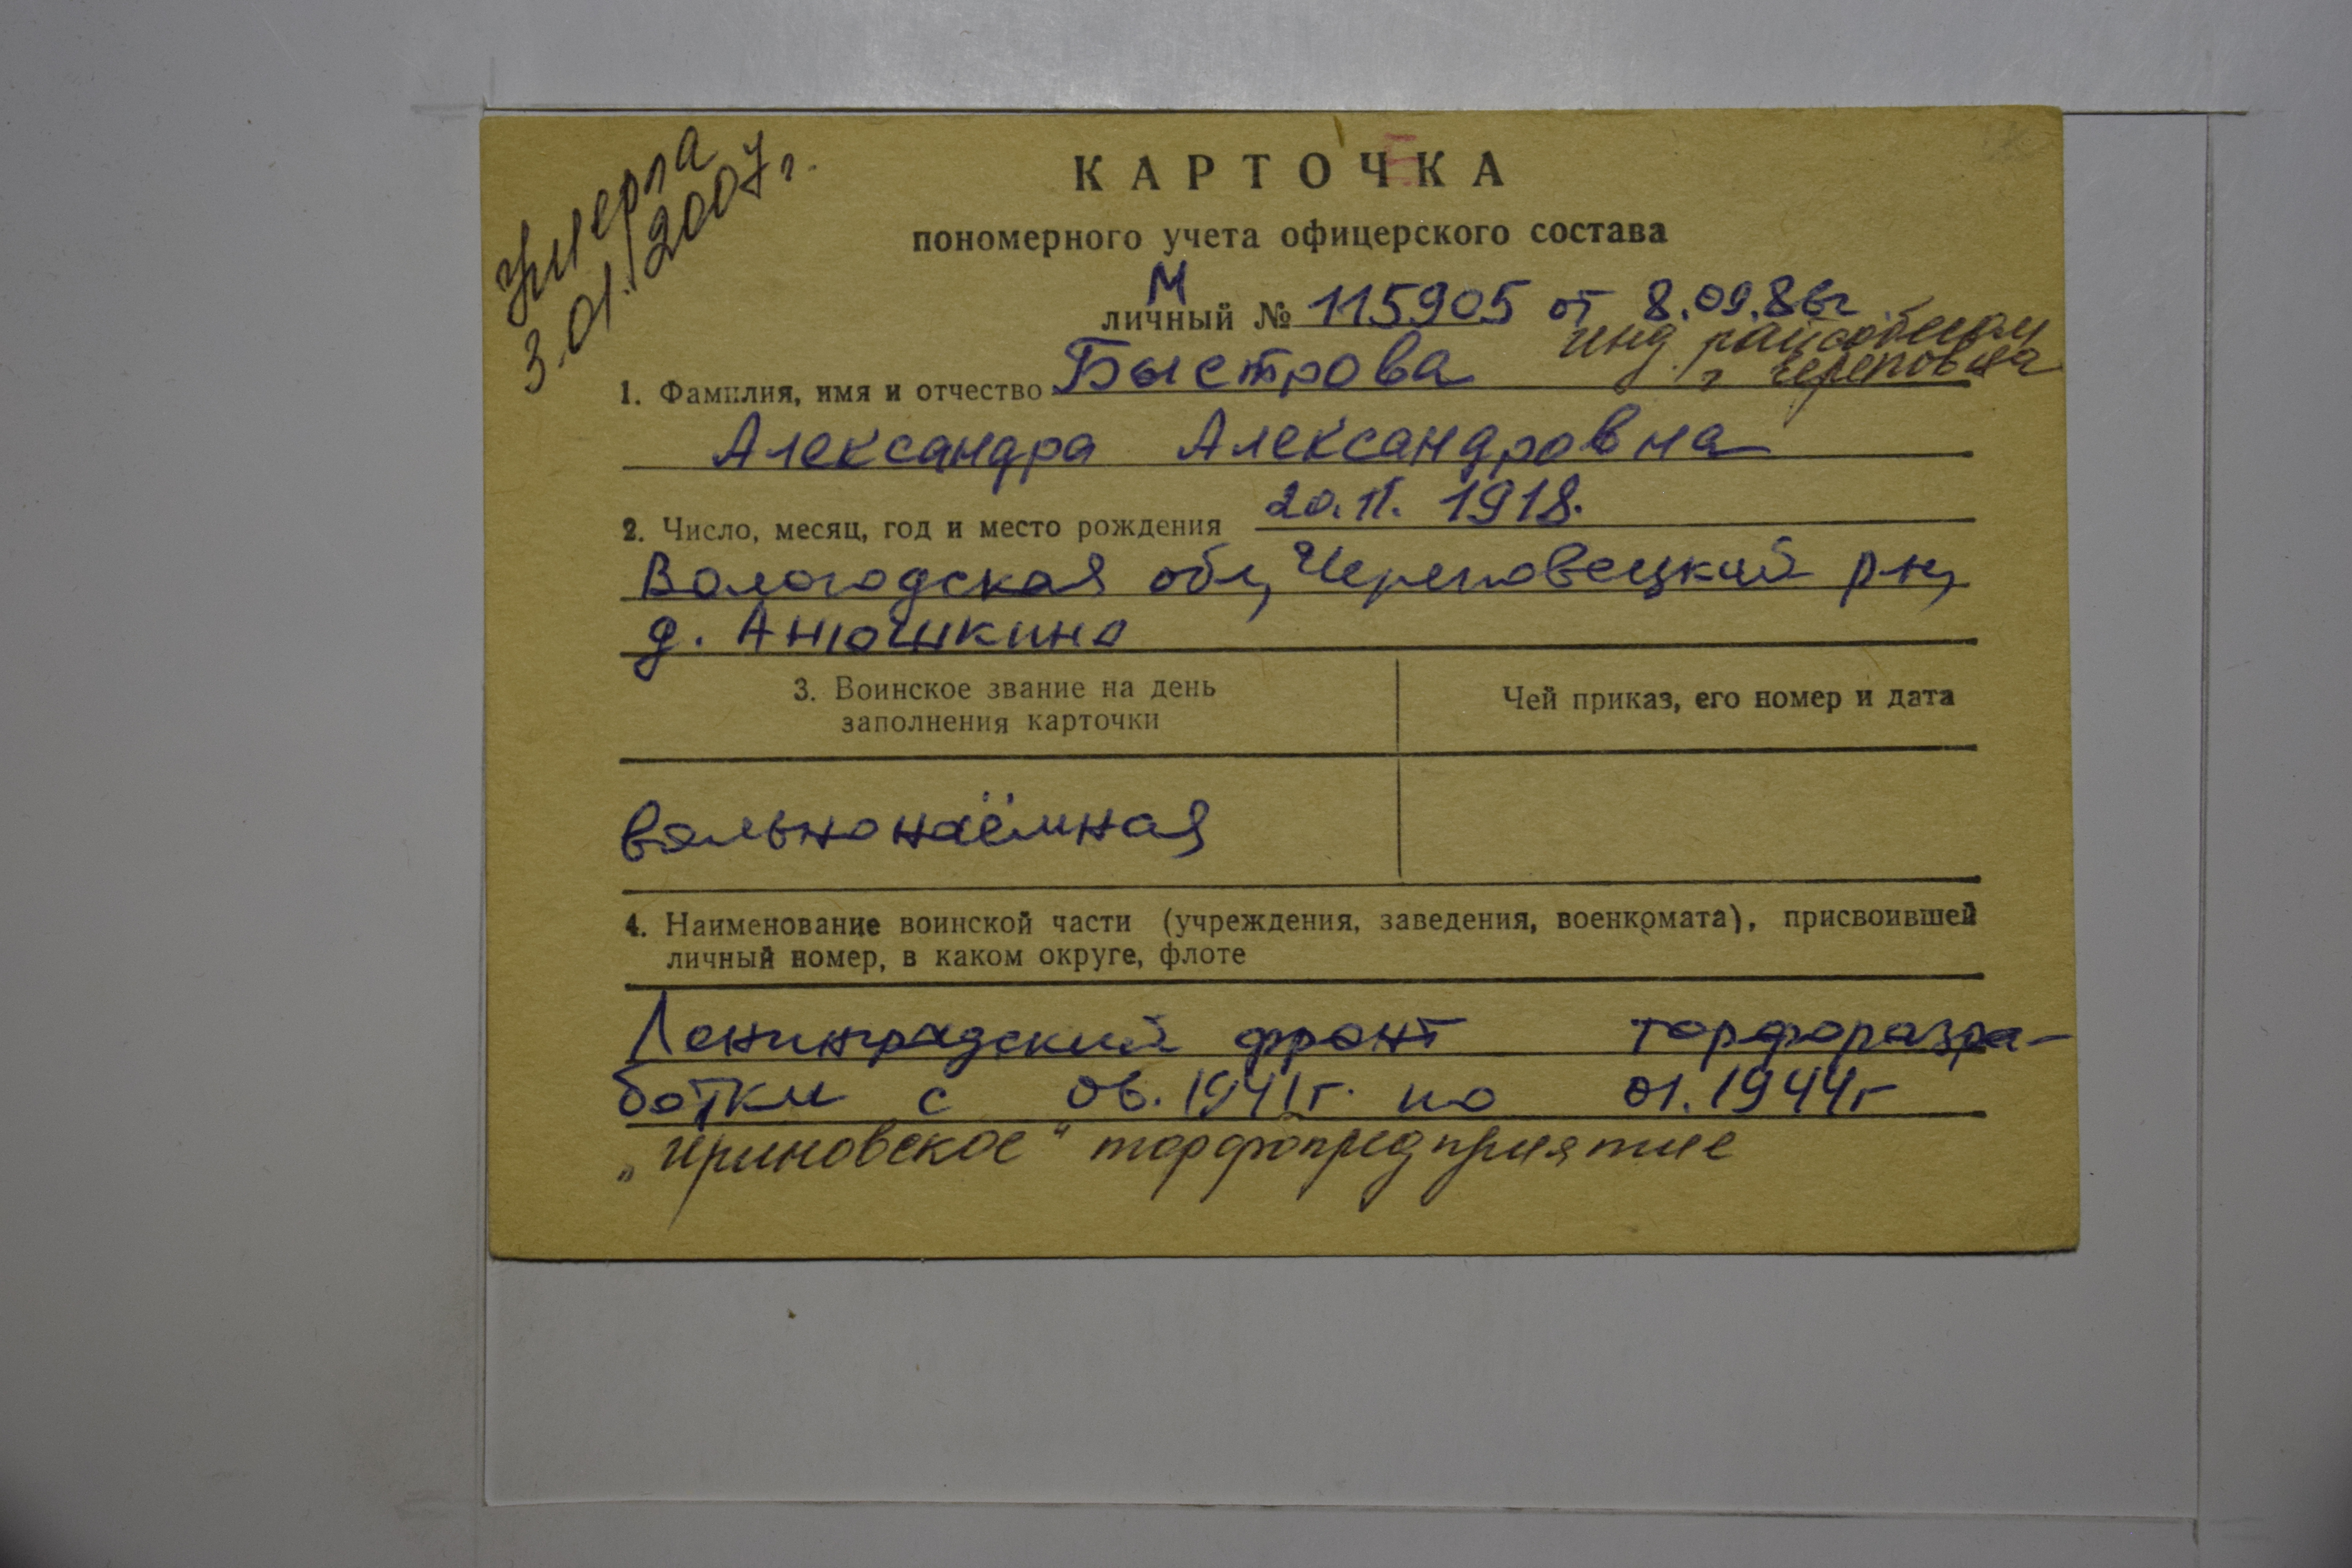 умерла
3.01.2007г.
КАРТОЧКА
пономерного учета офицерского состава
М
личный № 115905 от 8.09.86г
инд. райсобесом
г Череповца
1. Фамилия, имя и отчество Быстрова
Александра Александровна
2. Число, месяц, год и место рождения 20.II. 1918.
Вологодская обл, Череповецкий р-н,
д. Анюшкино
3. Воинское звание на день
заполнения карточки
Чей приказ, его номер и дата
вольнонаёмная
4. Наименование воинской части (учреждения, заведения, военкомата), присвоившей
личный номер, в каком округе, флоте
Ленинградский фронт торфоразра-
ботки с 06.1941г. по 01.1944г
„Ириновское" торфопредприятие